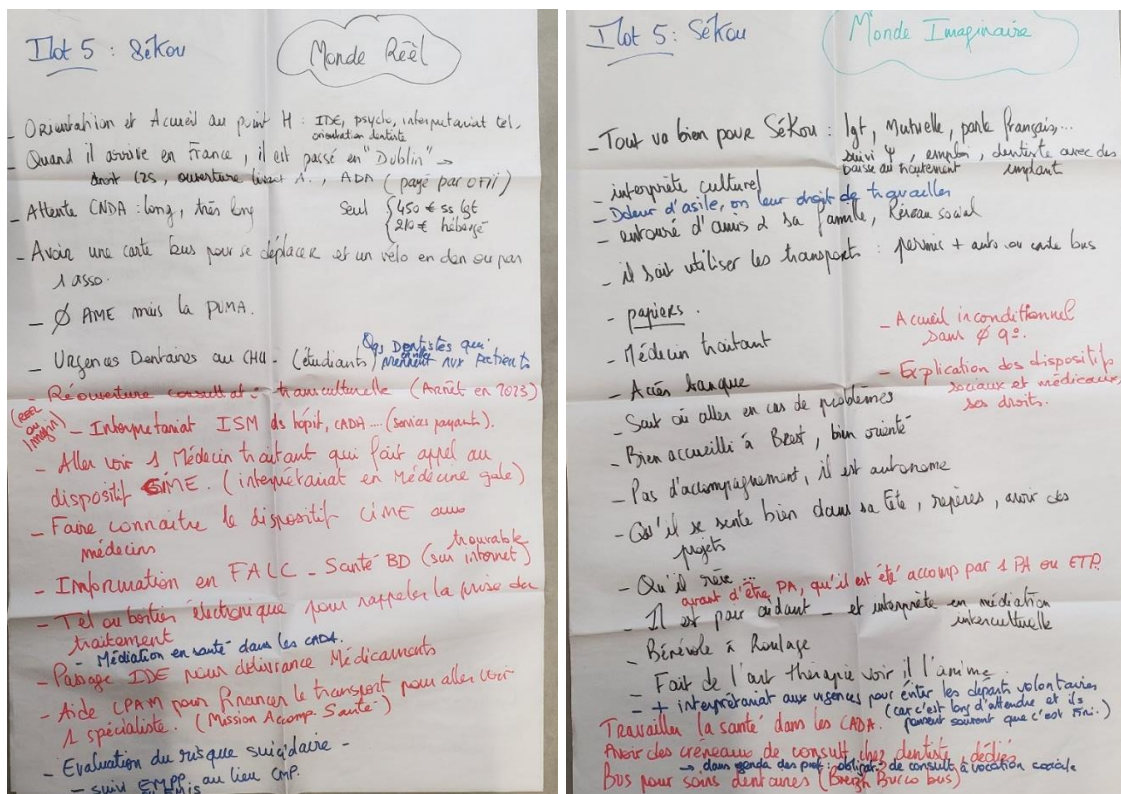 Ilot 5 : Sékou
Monde Réel
- Orientation et Accueil au point H : IDE, psycho, interpretariat tel.
orientation dentiste
- Quand il arrive en France, il est passé en "Dublin" →
droit CSS, ouverture livret A., ADA (payé par OFII)
- Attente CNDA : long, très long
Seul { 450 € ss lgt
{ 210 € hébergé
- Avoir une carte bus pour se déplacer et un vélo en don ou par
1 asso.
- Ø AME mais la PUMA.
- Urgences Dentaires au CHU - (étudiants)
Qqs Dentistes qui
en ville
prennent nvx patients
- Réouverture consultat° transculturelle (Arrêt en 2023)
(REEL ou Imagin)
- Interpretariat ISM ds hôpit, CADA .... (services payants).
- Aller voir 1 Médecin traitant qui fait appel au
dispositif CIME. (interprétariat en Médecine gale)
- Faire connaitre le dispositif CIME aux
médecins
- Information en FALC - Santé BD (trouvable
sur internet)
- Tel ou boitier électronique pour rappeler la prise du
traitement
- Médiation en santé dans les CADA.
- Passage IDE pour délivrance Médicaments
- Aide CPAM pour financer le transport pour aller voir
1 spécialiste. (Mission Accomp. Santé)
- Evaluation du risque suicidaire -
- suivi EMPP au lieu CMP.
Ilot 5 : Sékou
Monde Imaginaire
- Tout va bien pour Sékou : lgt, Mutuelle, parle français,...
suivi Ψ, emploi, dentiste avec des
baisse du traitement implant
- interprète culturel
- Ddeur d'asile, on leur droit de travailler
- entouré d'amis & sa famille, Réseau social
- il sait utiliser les transports : permis + auto ou carte bus
- papiers.
- Accueil inconditionnel
sans Ø q°.
- Médecin traitant
- Explication des dispositifs
sociaux et médicaux,
ses droits.
- Accès banque
- Sait où aller en cas de problèmes
- Bien accueilli à Brest, bien orienté
- Pas d'accompagnement, il est autonome
- Qu'il se sente bien dans sa tête, repères, avoir des
projets
- Qu'il rêve ...
avant d'être PA, qu'il est été accomp par 1 PA ou ETP.
- Il est pair aidant - et interprète en médiation
interculturelle
- Bénévole à Roulage
- Fait de l'art thérapie voir il l'anime.
- + interprétariat aux urgences pour éviter les départs volontaires
(car c'est long d'attendre et ils
pensent souvent que c'est fini.)
Travailler la santé dans les CADA.
Avoir des créneaux de consult chez dentiste, dédiés
→ dans agenda des prof : obligat° de consult à vocation sociale
Bus pour soins dentaires (Breizh Bucco bus)